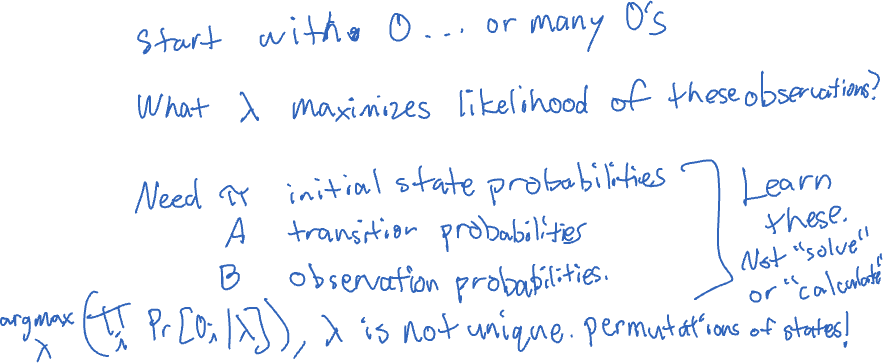 Start with O... or many O's
What λ maximizes likelihood of these observations?
Need π initial state probabilities
A transition probabilities
B observation probabilities.
Learn
these.
Not "solve"
or "calculate"
argmax λ (∏ i Pr[Oi|λ]), λ is not unique. permutations of states!